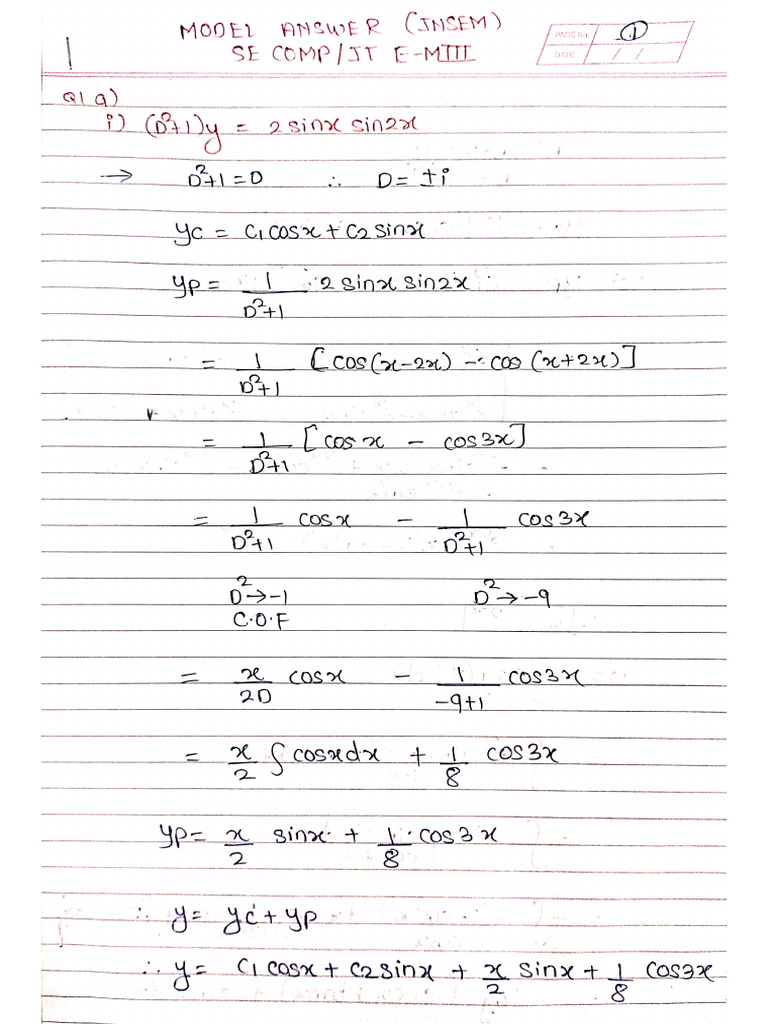 MODEL ANSWER (INSEM)
SE COMP/IT E-MIII
PAGE No. 1
DATE / /
1
Q1 a)
i) (D²+1)y = 2 sinx sin2x
→ D²+1=0 ∴ D= ±i
yc = c1cosx + c2 sinx
yp = 1/(D²+1) 2 sinx sin2x
= 1/(D²+1) [cos(x-2x) - cos (x+2x)]
= 1/(D²+1) [cosx - cos3x]
= 1/(D²+1) cosx - 1/(D²+1) cos3x
D²→-1 D²→-9
C.O.F
= x/2D cosx - 1/(-9+1) cos3x
= x/2 ∫cosxdx + 1/8 cos3x
yp= x/2 sinx + 1/8 cos3x
∴ y= yc + yp
∴ y= c1cosx + c2sinx + x/2 sinx + 1/8 cos3x